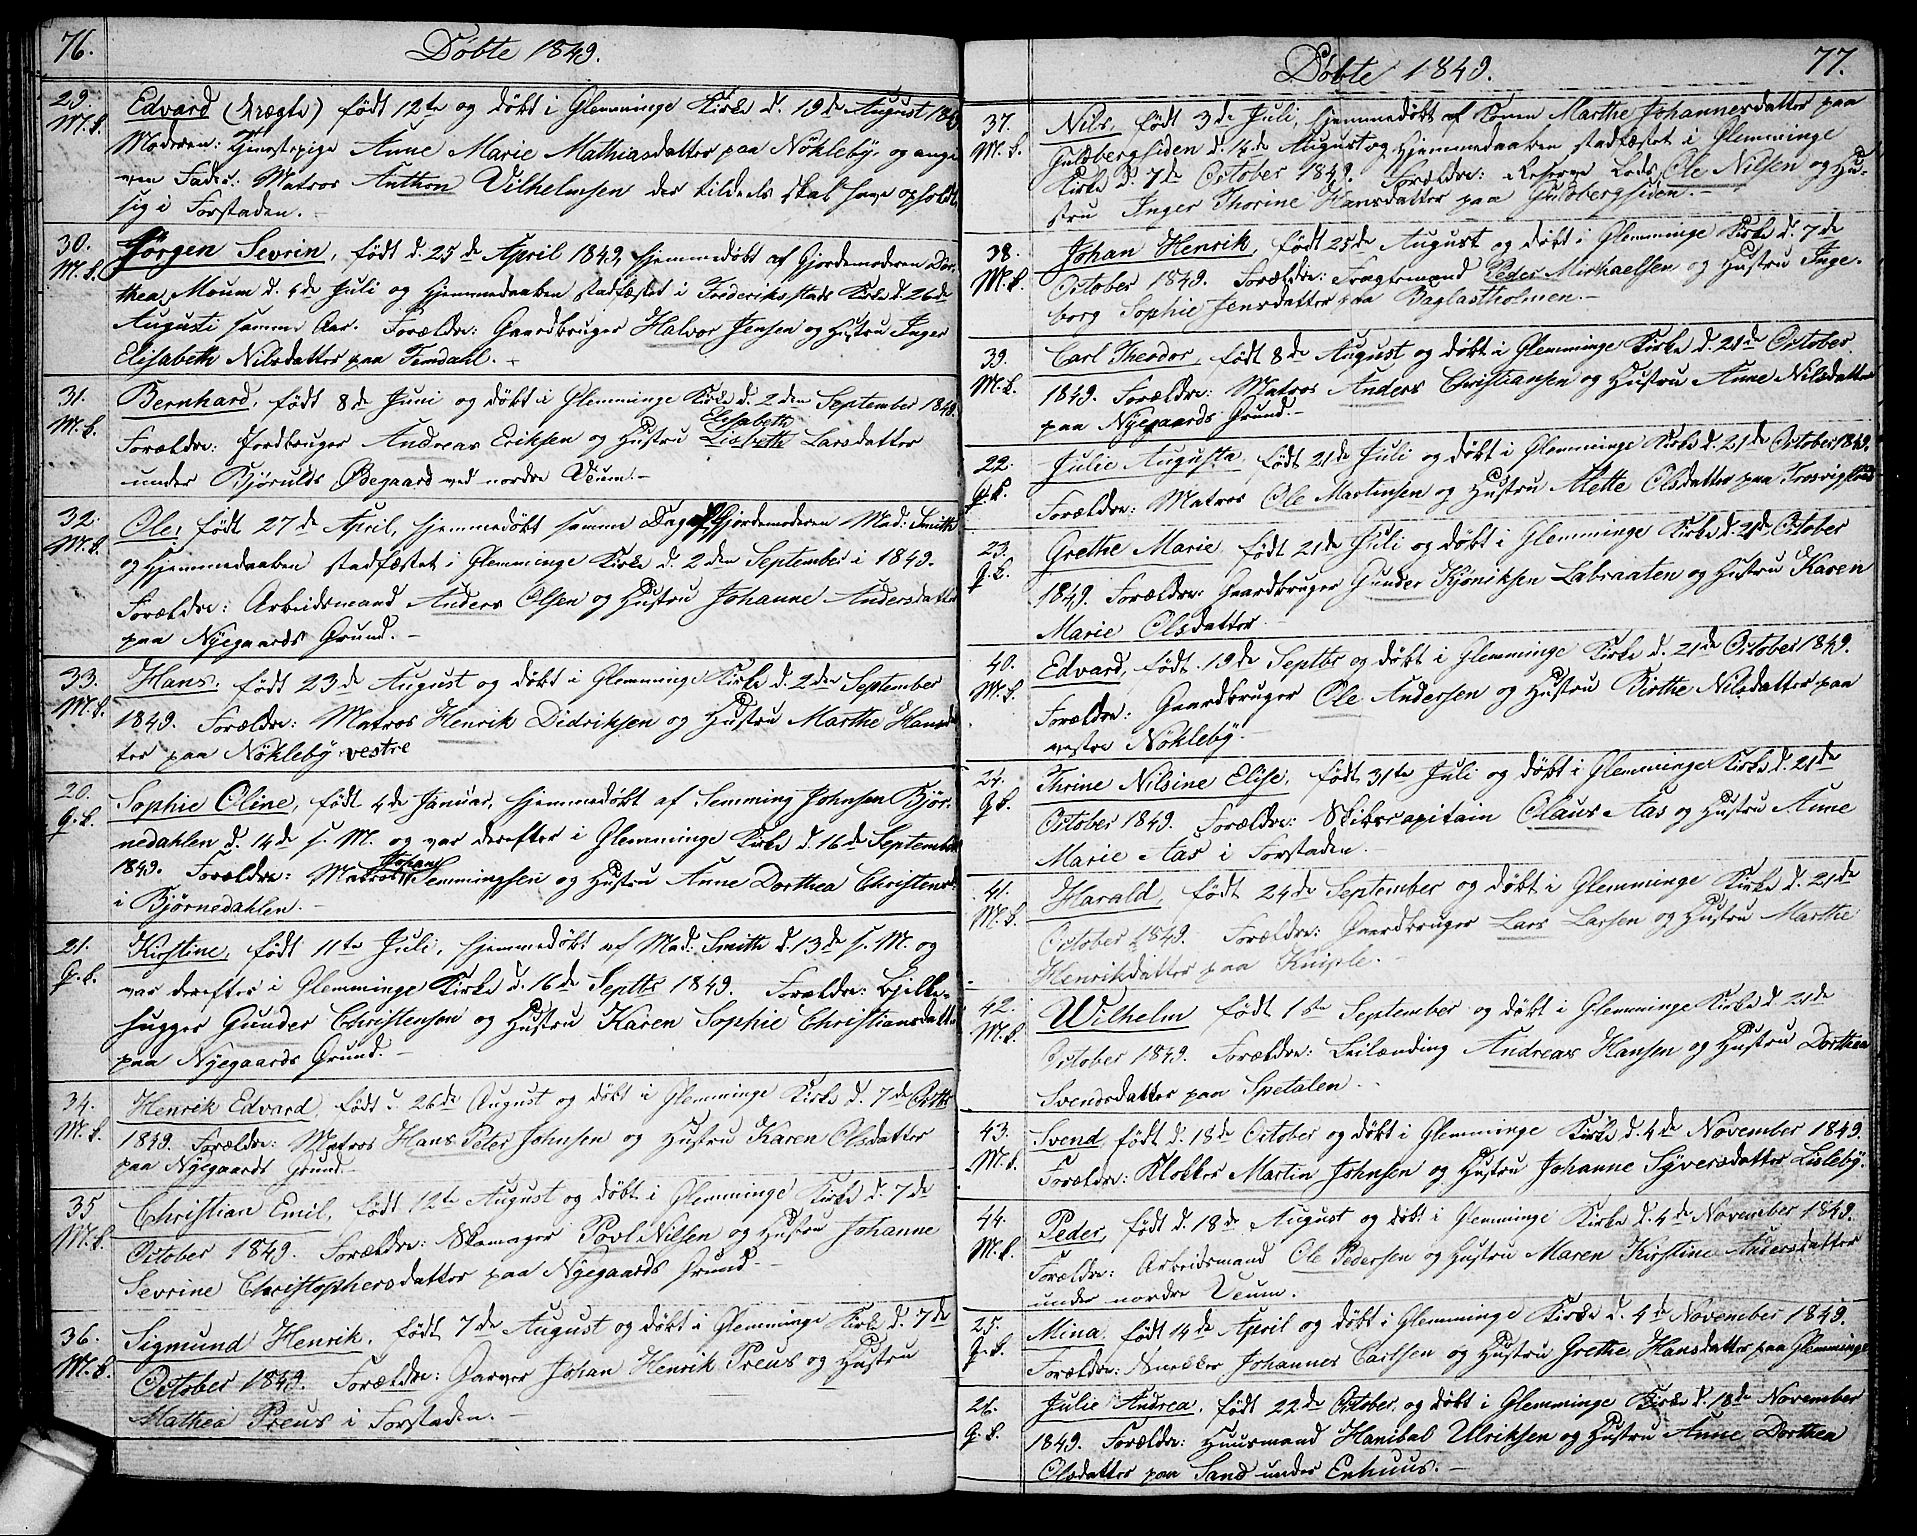 76.
Döbte 1849.
29.
M.k.
Edvard (Uægte) født 12te og døbt i Glemminge Kirke d. 19de August 1849
Moderen: Tjenestepige Anne Marie Mathiasdatter paa Nökleby, og angi-
ven Fader: Matros Anthon Vilhelmsen der tildeels skal have opholdt
sig i Forstaden. -
30.
M.k.
Jörgen Sevrin, født d. 25de April 1849, hjemmedöbt af Gjordemoderen Dor-
thea Moum d. 4de Juli og Hjemmedaaben stadfæstet i Frederiksstads Kirke d. 26de
Augusti samme Aar. Forældre: Gaardbruger Halvor Jensen og Hustru Inger
Elisabeth Nilsdatter paa Tomdahl. -
31.
M.k.
Bernhard, født 8de Juni og døbt i Glemminge Kirke d. 2den September 1849.
Elisabeth
Forældre: Jordbruger Andreas Eriksen og Hustru Lisbeth Larsdatter
under Bjørulds Ødegaard ved nordre Veum. -
32.
M.k.
Ole, født 27de April, hjemmedöbt samme Dag af Gjordemoderen Mad: Smith
og Hjemmedaaben stadfæstet i Glemminge Kirke d. 2den September i 1849.
Forældre: Arbeidsmand Anders Olsen og Hustru Johanne Andersdatter
paa Nyegaards Grund. -
33.
M.k.
Hans, født 23de August og döbt i Glemminge Kirke d. 2den September
1849. Forældre: Matros Henrik Didriksen og Hustru Marthe Hansdat-
ter paa Nökleby vestre
20.
Q.k.
Sophie Oline, født 4de Januar, hjemmedöbt af Semming Johnsen Bjør-
nedahlen d. 14de s. M. og var derefter i Glemminge Kirke d. 16de September
Johan
1849. Forældre: Matros Semmingsen og Hustru Anne Dorthea Christensd.
i Bjørnedahlen. -
21.
Q.k.
Kirstine, født 11te Juli, hjemmedöbt af Mad: Smith d. 13de s. M. og
var derefter i Glemminge Kirke d. 16de Septbr 1849. Forældre: Bjelke-
hugger Gunder Christensen og Hustru Karen Sophie Christiansdatter
paa Nyegaards Grund. -
34.
M.k.
Henrik Edvard, født d. 26de August og döbt i Glemminge Kirke d. 7de Octbr
1849. Forældre: Matros Hans Peter Johnsen og Hustru Karen Olsdatter
paa Nyegaards Grund. -
35
M.k.
Christian Emil, født 12te August og döbt i Glemminge Kirke d. 7de
October 1849. Forældre: Skomager Povl Nilsen og Hustru Johanne
Sevrine Christophersdatter paa Nyegaards Grund. -
36.
M.k.
Sigmund Henrik, født 7de August og döbt i Glemminge Kirke d. 7de
October 1849. Forældre: Garver Johan Henrik Preus og Hustru
Mathea Preus i Forstaden. -
77.
Döbte 1849.
37.
M.k.
Nils, født 3de Juli, hjemmedöbt af Konen Marthe Johannesdatter paa
Guldbergsiden d. 14de August og Hjemmedaaben stadfæstet i Glemminge
Kirke d. 7de October 1849. Forældre: Reserve Lods Ole Nilsen og Hu-
stru Inger Thorine Hansdatter paa Guldbergsiden. -
38.
M.k.
Johan Henrik, født 25de August og döbt i Glemminge Kirke d. 7de
October 1849. Forældre: Fragtemand Peder Mickaelsen og Hustru Inge-
borg Sophie Jensdatter paa Baglastholmen. -
39.
M.k.
Carl Theodor, født 8de August og döbt i Glemminge Kirke d. 21de October
1849. Forældre: Matros Anders Christiansen og Hustru Anne Nilsdatter
paa Nyegaards Grund. -
22.
Q.k.
Julie Augusta, født 21de Juli og döbt i Glemminge Kirke d. 21de October 1849.
Forældre: Matros Ole Martinsen og Hustru Mette Olsdatter paa
23.
Q.k.
Grethe Marie født 21de Juli og döbt i Glemminge Kirke d. 21de October
1849. Forældre: Gaardbruger Gunder Kjöniksen Labraaten og Hustru Karen
Marie Olsdatter.
40.
M.k.
Edvard, født 19de Septbr og döbt i Glemminge Kirke d. 21de October 1849.
Forældre: Gaardbruger Ole Andersen og Hustru Birthe Nilsdatter paa
vestre Nökleby. -
24.
Q.k.
Thrine Nilsine Elise, født 31te Juli og döbt i Glemminge Kirke d. 21de
October 1849. Forældre: Skibscapitain Claus Aas og Hustru Anne
Marie Aas i Forstaden. -
41.
M.k.
Harald, født 24de September og döbt i Glemminge Kirke d. 21de
October 1849. Forældre: Gaardbruger Lars Larsen og Hustru Marthe
Henriksdatter paa Kniple. -
42.
M.k.
Wilhelm født 1ste September og döbt i Glemminge Kirke d. 21de
October 1849. Forældre: Leilænding Andreas Hansen og Hustru Dorthea
Svendsdatter paa Spetalen. -
43.
M.k.
Svend, født d. 18de October og döbt i Glemminge Kirke d. 4de November 1849.
Forældre: Klokker Martin Johnsen og Hustru Johanne Syversdatter Lisleby.
44.
M.k.
Peder, født d. 18de August og döbt i Glemminge Kirke d. 4de November 1849.
Forældre: Arbeidsmand Ole Pedersen og Hustru Maren Kirstine Andersdatter
under nordre Veum.
25.
Q.k.
Mina, født 14de April og döbt i Glemminge Kirke d. 4de November 1849.
Forældre: Snekker Johannes Carlsen og Hustru Grethe Hansdatter paa Glemminge
26.
Q.k.
Julie Andrea, født 22de October og döbt i Glemminge Kirke d. 18de November
1849. Forældre: Huusmand Hanibal Ulriksen og Hustru Anne Dorthea
Olsdatter paa Sand under Enhuus. -